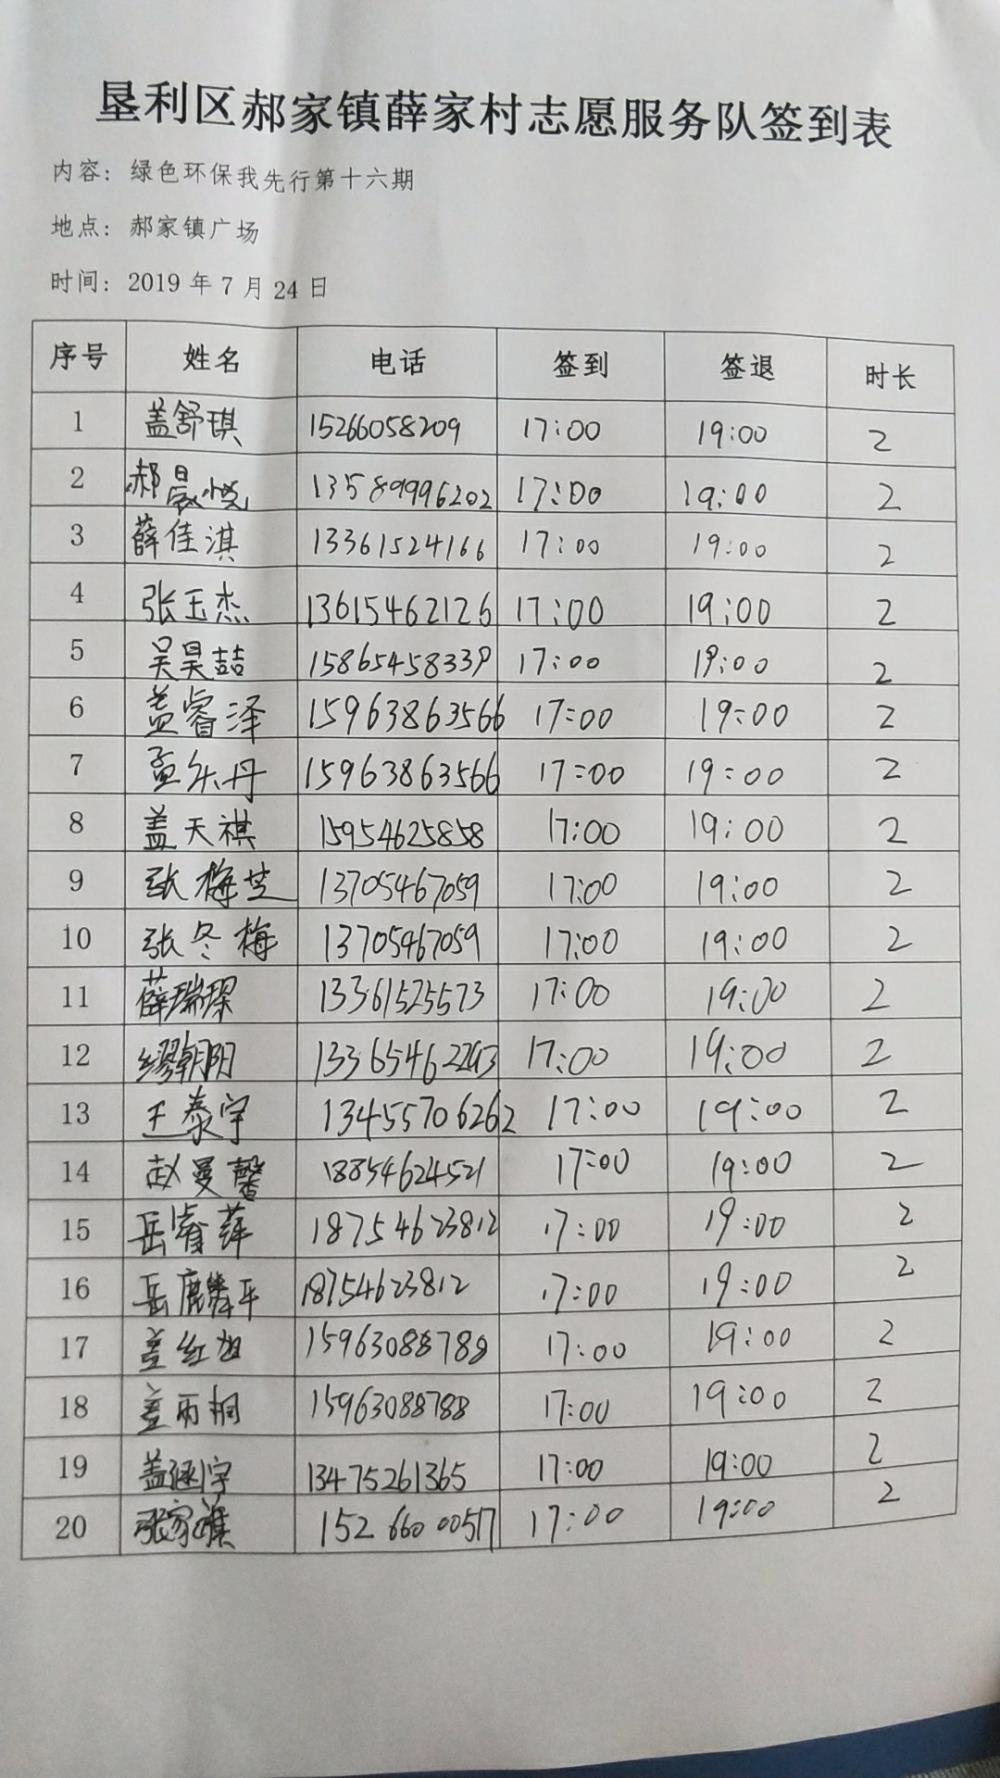 垦利区郝家镇薛家村志愿服务队签到表
内容：绿色环保我先行第十六期
地点：郝家镇广场
时间：2019 年 7 月 24 日
序号 姓名 电话 签到 签退 时长
1 盖舒琪 15266058209 17:00 19:00 2
2 郝晨悦 13589996202 17:00 19:00 2
3 薛佳淇 13361524166 17:00 19:00 2
4 张玉杰 13615462126 17:00 19:00 2
5 吴昊喆 15865458339 17:00 19:00 2
6 盖睿泽 15963863566 17:00 19:00 2
7 孟乐丹 15963863566 17:00 19:00 2
8 盖天祺 15954625858 17:00 19:00 2
9 张梅芝 13705467059 17:00 19:00 2
10 张冬梅 13705467059 17:00 19:00 2
11 薛瑞琛 13361525573 17:00 19:00 2
12 缪朝阳 17:00 19:00 2
13 王泰宇 13455706262 17:00 19:00 2
14 赵曼馨 18854624521 17:00 19:00 2
15 岳睿萍 18754623812 17:00 19:00 2
16 岳麟平 18754623812 17:00 19:00 2
17 盖红旭 15963088788 17:00 19:00 2
18 盖雨桐 15963088788 17:00 19:00 2
19 盖涵宇 13475261365 17:00 19:00 2
20 张家 17:00 19:00 2